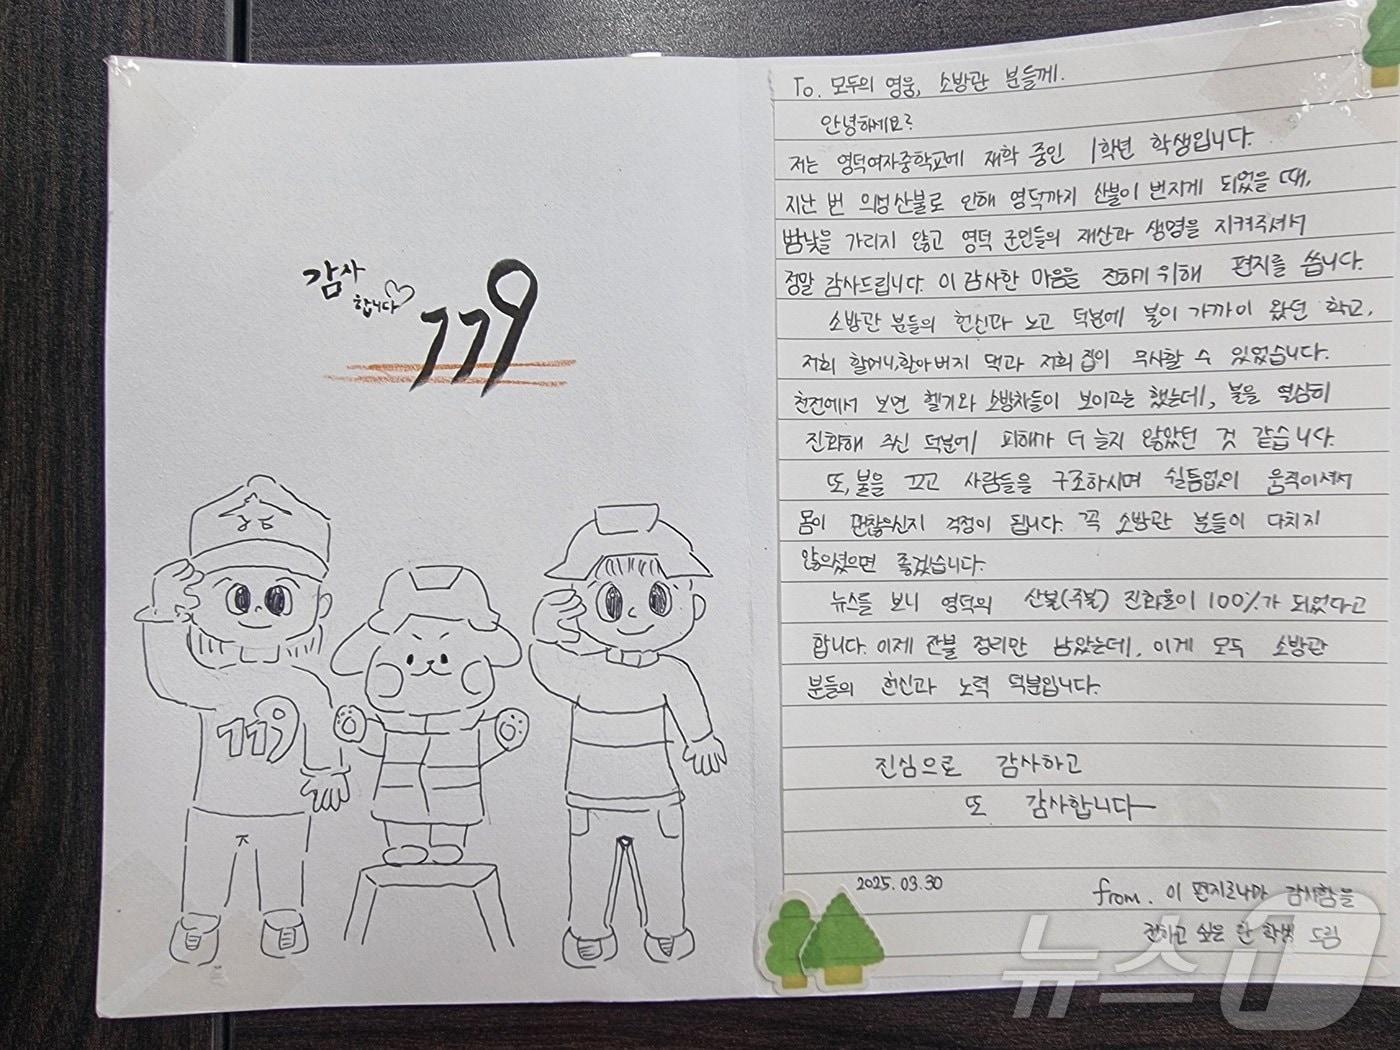 감사
합니다♡
119
119
To. 모두의 영웅, 소방관 분들께.
안녕하세요?
저는 영덕여자중학교에 재학 중인 1학년 학생입니다.
지난 번 의성산불로 인해 영덕까지 산불이 번지게 되었을 때,
밤낮을 가리지 않고 영덕 군민들의 재산과 생명을 지켜주셔서
정말 감사드립니다. 이 감사한 마음을 전하기 위해 편지를 씁니다.
소방관 분들의 헌신과 노고 덕분에 불이 가까이 왔던 학교,
저희 할머니,할아버지 댁과 저희 집이 무사할 수 있었습니다.
천전에서 보면 헬기와 소방차들이 보이고는 했는데, 불을 열심히
진화해 주신 덕분에 피해가 더 늘지 않았던 것 같습니다.
또, 불을 끄고 사람들을 구조하시며 쉴틈없이 움직이셔서
몸이 괜찮으신지 걱정이 됩니다. 꼭 소방관 분들이 다치지
않으셨으면 좋겠습니다.
뉴스를 보니 영덕의 산불(주불) 진화율이 100%가 되었다고
합니다. 이제 잔불 정리만 남았는데, 이게 모두 소방관
분들의 헌신과 노력 덕분입니다.
진심으로 감사하고
또 감사합니다
2025.03.30
from. 이 편지로나마 감사함을
전하고 싶은 한 학생 드림
뉴스1